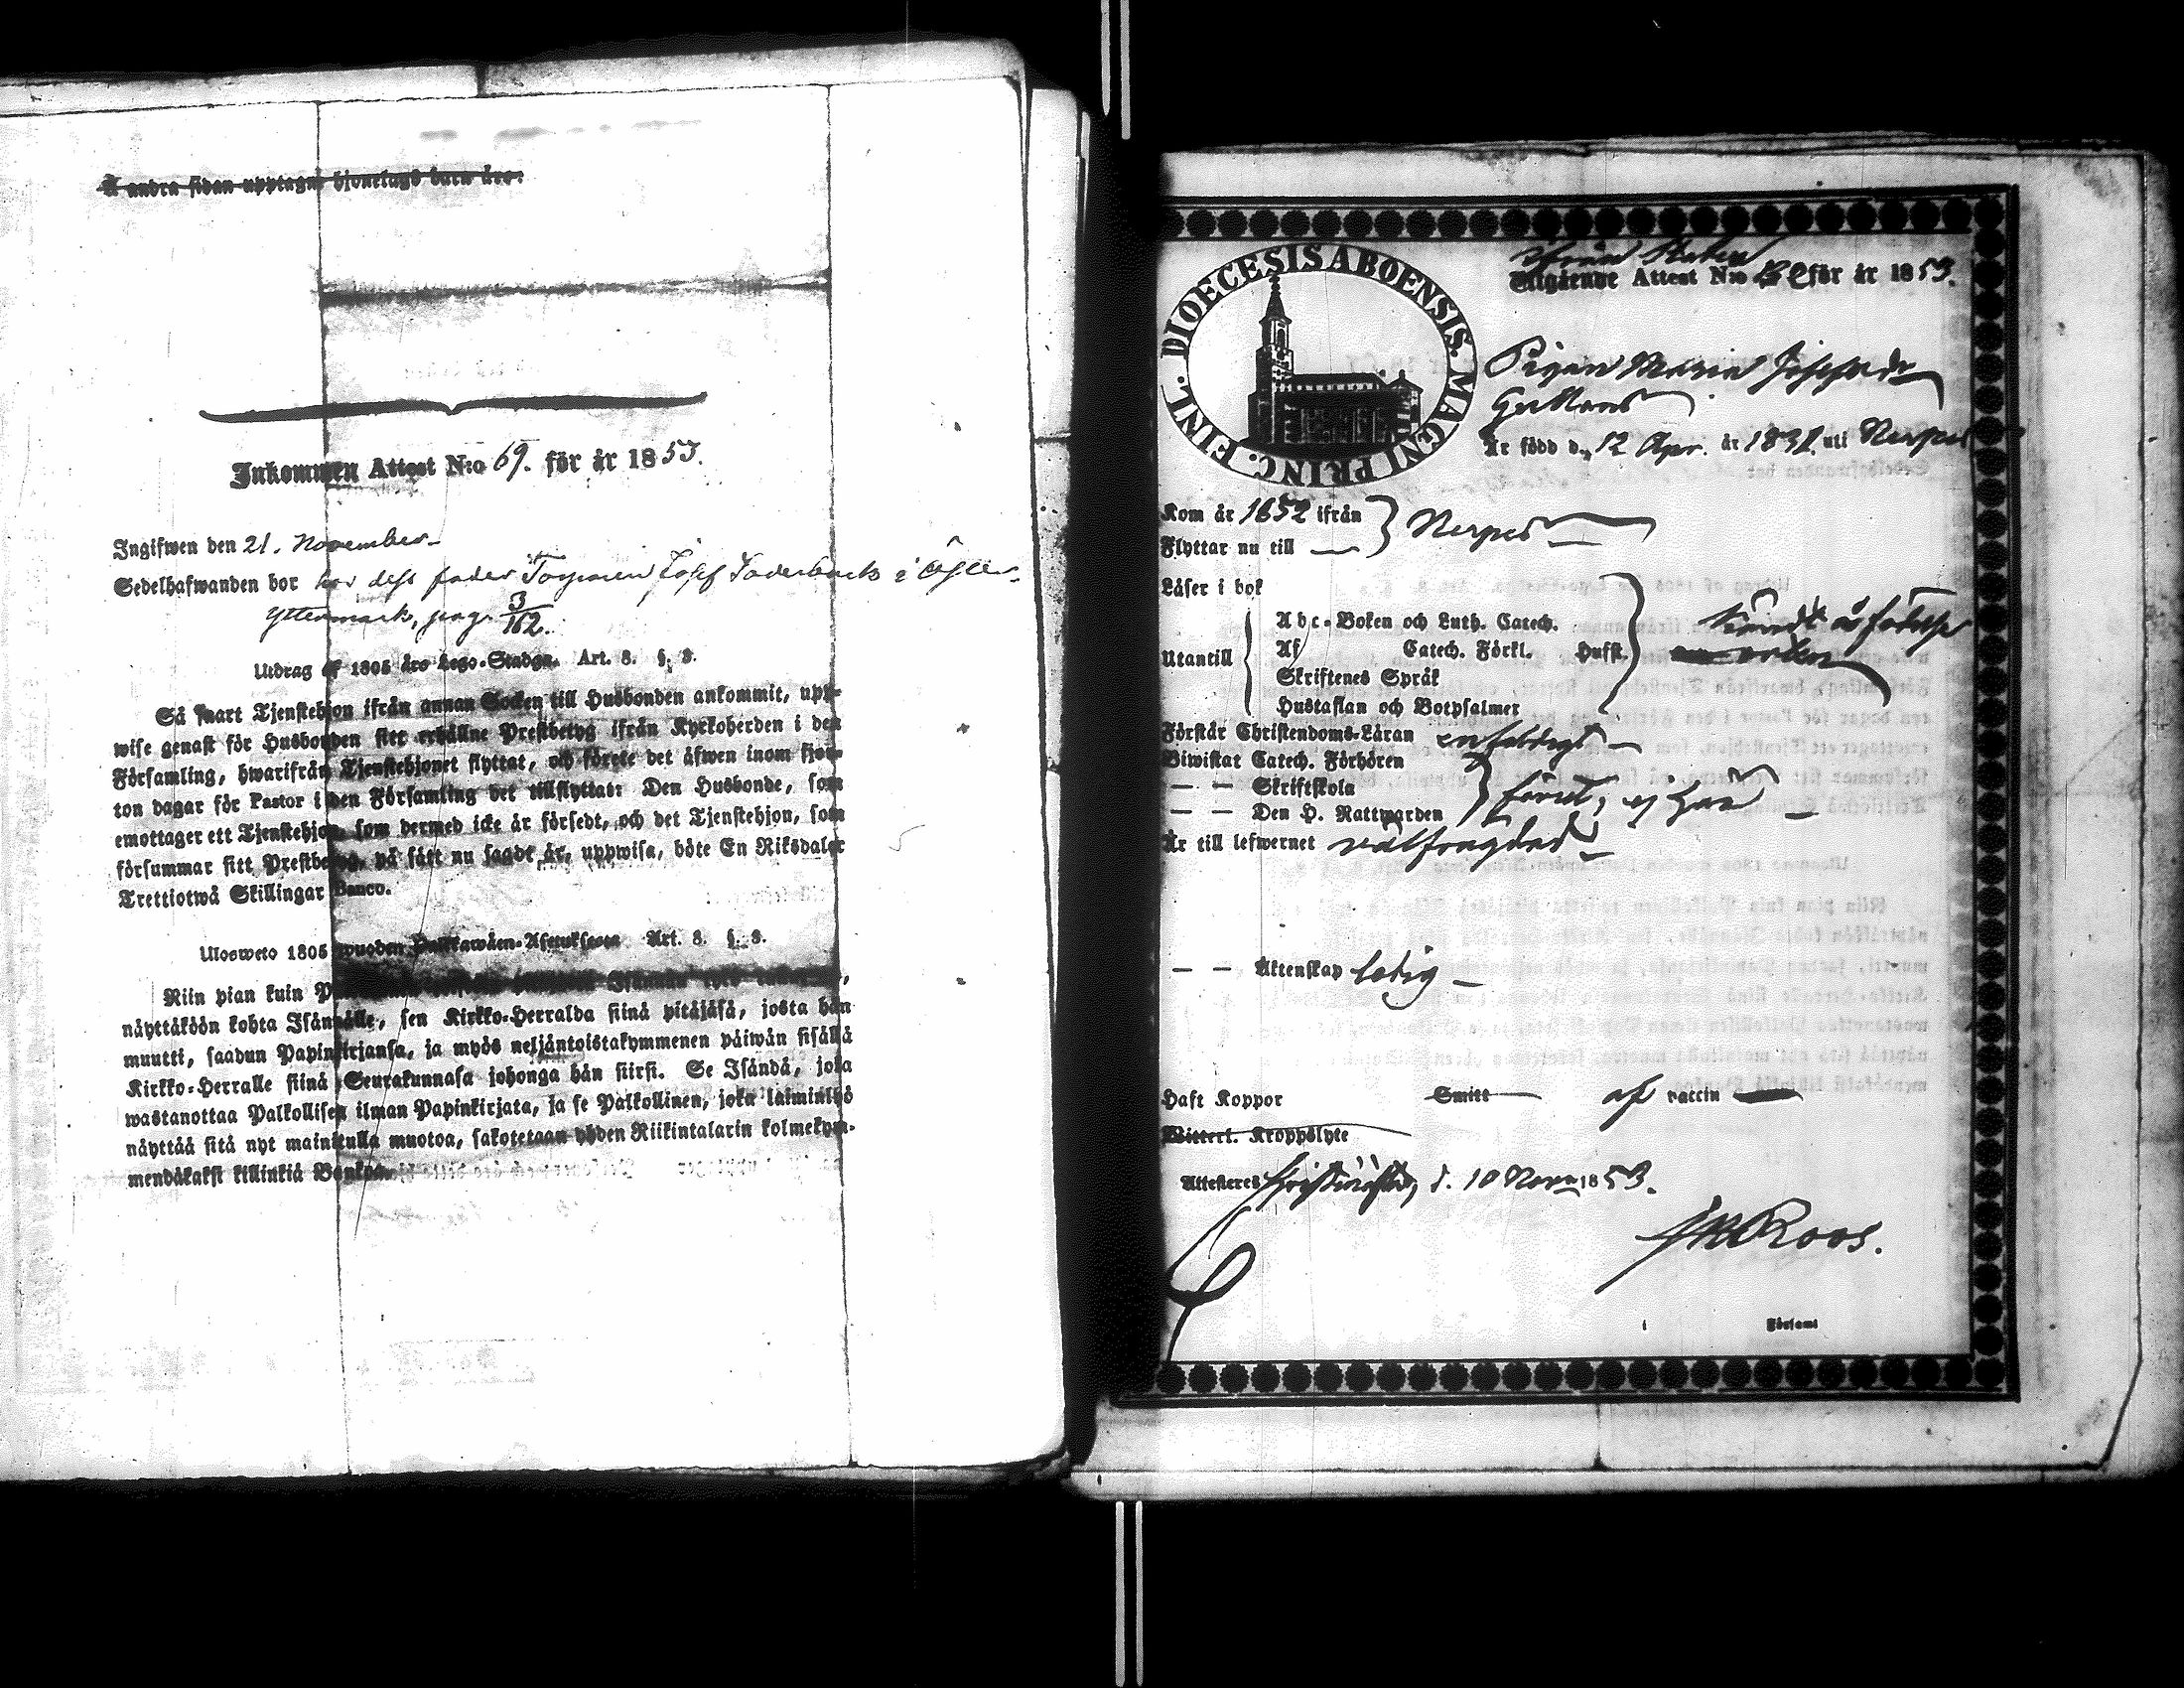 Å andra sidan upptagne hjonelags barn äro:
Inkommen Attest N:o 69. för år 1853.
Ingifwen den 21. November
Sedelhafwanden bor hos dess fader Torparen Josef Söderback i Öfver-
Yttermark, pag. 3/162.
Utdrag af 1805 års Lego-Stadga. Art. 8. §. 3.
Så snart Tjenstehjon ifrån annan Socken till Husbonden ankommit, upp-
wise genast för Husbonden sitt erhållne Prestbetyg ifrån Kyrkoherden i den
Församling, hwarifrån Tjenstehjonet flyttat, och förete det äfwen inom fjor-
ton dagar för Pastor i den Församling det tillflyttat: Den Husbonde, som
emottager ett Tjenstehjon, som dermed icke är försedt, och det Tjenstehjon, som
försummar sitt Prestbetyg, på sätt nu sagdt är, uppwisa, böte En Riksdaler
Trettiotwå Skillingar Banco.
Ulosweto 1805 wuoden Palkkawäen-Asetuksesta Art. 8. §. 3.
Niin pian kuin
näyttäköön kohta Isännälle, sen Kirkko-Herralda siinä pitäjäsä, josta hän
muutti, saadun Papinkirjansa, ja myös neljäntoistakymmenen päiwän sisällä
Kirkko-Herralle siinä Seurakunnasa johonga hän siirsi. Se Isändä, joka
wastanottaa Palkollisen ilman Papinkirjata, ja se Palkollinen, joka laiminlyö
näyttää sitä nyt mainitulla muotoa, sakotetaan yhden Riikintalarin kolmekym-
mendäkaksi killinkiä Bankoa.
DIOECESIS ABOENSIS. MAGNI PRINC. FINL.
Utgående Attest N:o för år 1853.
Pigan Maria Josefsdr
Är född d. 12 Apr. år 1832 uti Nerpes
Kom år 1852 ifrån } Nerpes
Flyttar nu till
Läser i bok
Utantill { Abc-Boken och Luth. Catech.
Af Catech. Förkl. Husft.
Skriftenes Språk
Hustaflan och Botpsalmer
Förstår Christendoms-Läran enfaldigt
Biwistat Catech. Förhören
— — Skriftskola
— — Den H. Nattwarden } förut, ej här
Är till lefwernet välfrägdad
— — Äktenskap ledig
Haft Koppor Smitt af vaccin
Wittert. Kroppslyte
Attesteres Christinestad, d. 10 Novr 1853.
Roos.
Församl